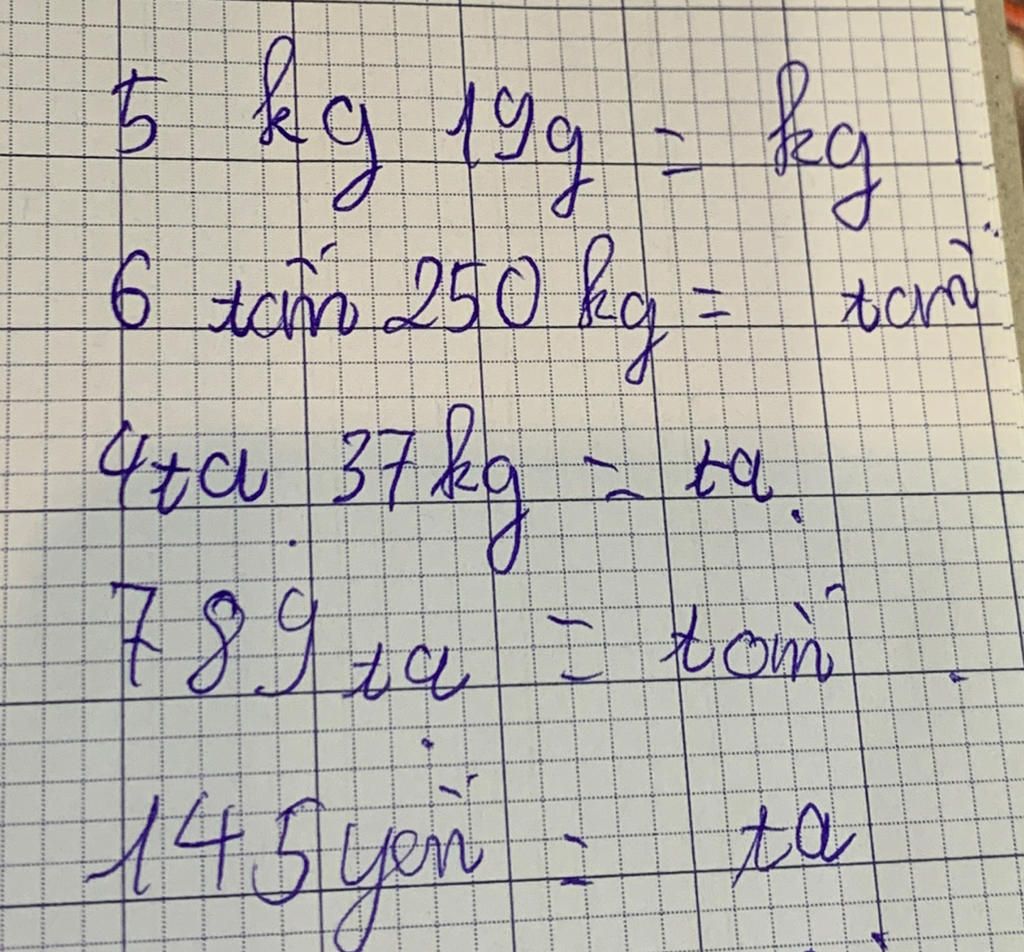 5 kg 19g = kg
6 tấn 250 kg = tấn
4 tạ 37 kg = tạ
789 tạ = tấn
145 yến = tạ